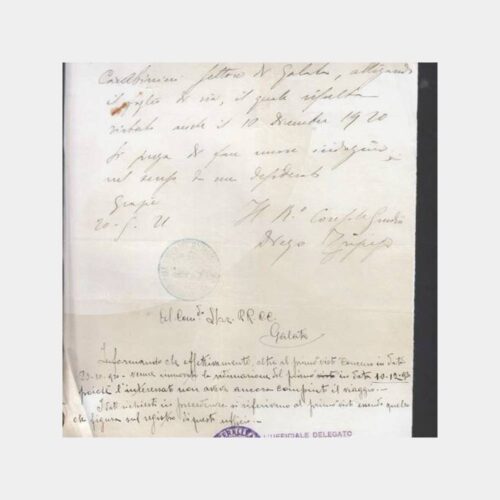 Carabinieri settore di Galata, allegando
il foglio di via, il quale risulta
vistato anche il 10 dicembre 1920
Si prega di fare nuove indagini
nel senso da me desiderato
Grazie
Il R.° Console Giudice
20-5-21
Diego
Al Com.do Staz. RR CC.
Galata
Informando che effettivamente, oltre al primo visto concesso in data
venne the rinnovazione del primo visto in data 10-12-920
poichè l'interessato non aveva ancora compiuto il viaggio.-
I dati richiesti in precedenza si riferivano al primo visto essendo quello
che figura sul registro di questo ufficio.-
L'UFFICIALE DELEGATO